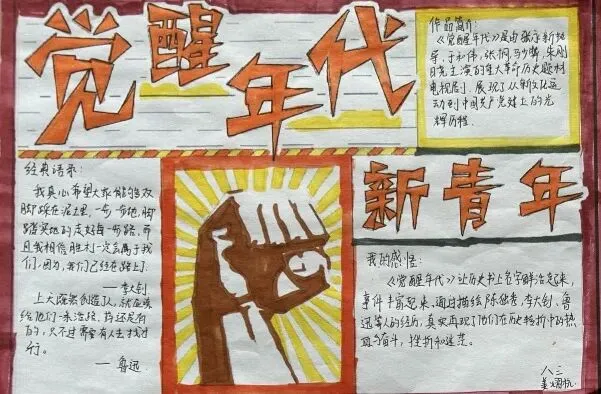 觉醒年代
作品简介:
《觉醒年代》是由张永新执
导,于和伟,张桐,马少骅,朱刚
日尧主演的重大革命历史题材
电视剧,展现了从新文化运
动到中国共产党建立的光
辉历程.
经典语录:
我真心希望大家能够双
脚踩在泥土里,一步一步地,脚
踏实地的走好每一步路,而
且我相信胜利一定会属于我
们,因为,我们已经在路上了.
——李大钊
上天既然创造了人,就应该
给他们一条活路,持还是有
的,只不过需要有人去找
行.
—鲁迅
新青年
我的感悟:
《觉醒年代》让历史书上名字鲜活起来,
事件丰富起来,通过描绘陈独秀,李大钊,鲁
迅等人的经历,真实再现了他们在历史转折中的热
奋斗,挫折和迷茫.
八三
姜